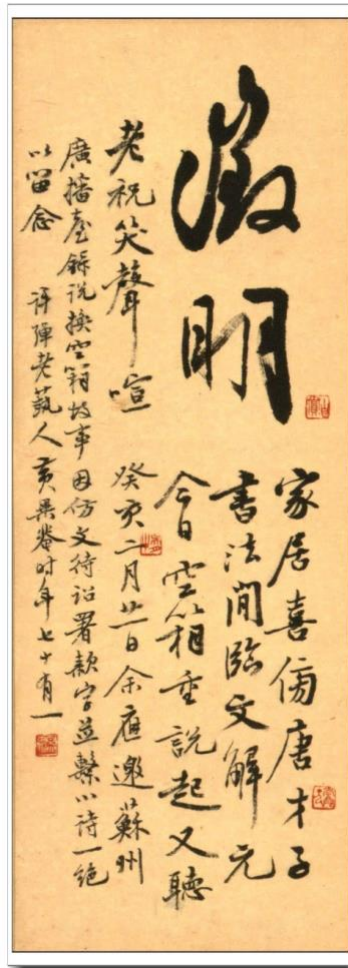 徵明
家居喜傍唐才子
書法間臨文解元
今日空箱重說起又聽
老祝笑聲喧 癸亥二月廿日余應邀蘇州
廣播臺錄說換空箱故事因仿文待詔署款字並繫以詩一絕
以留念 評彈老藝人黃異菴时年七十有一